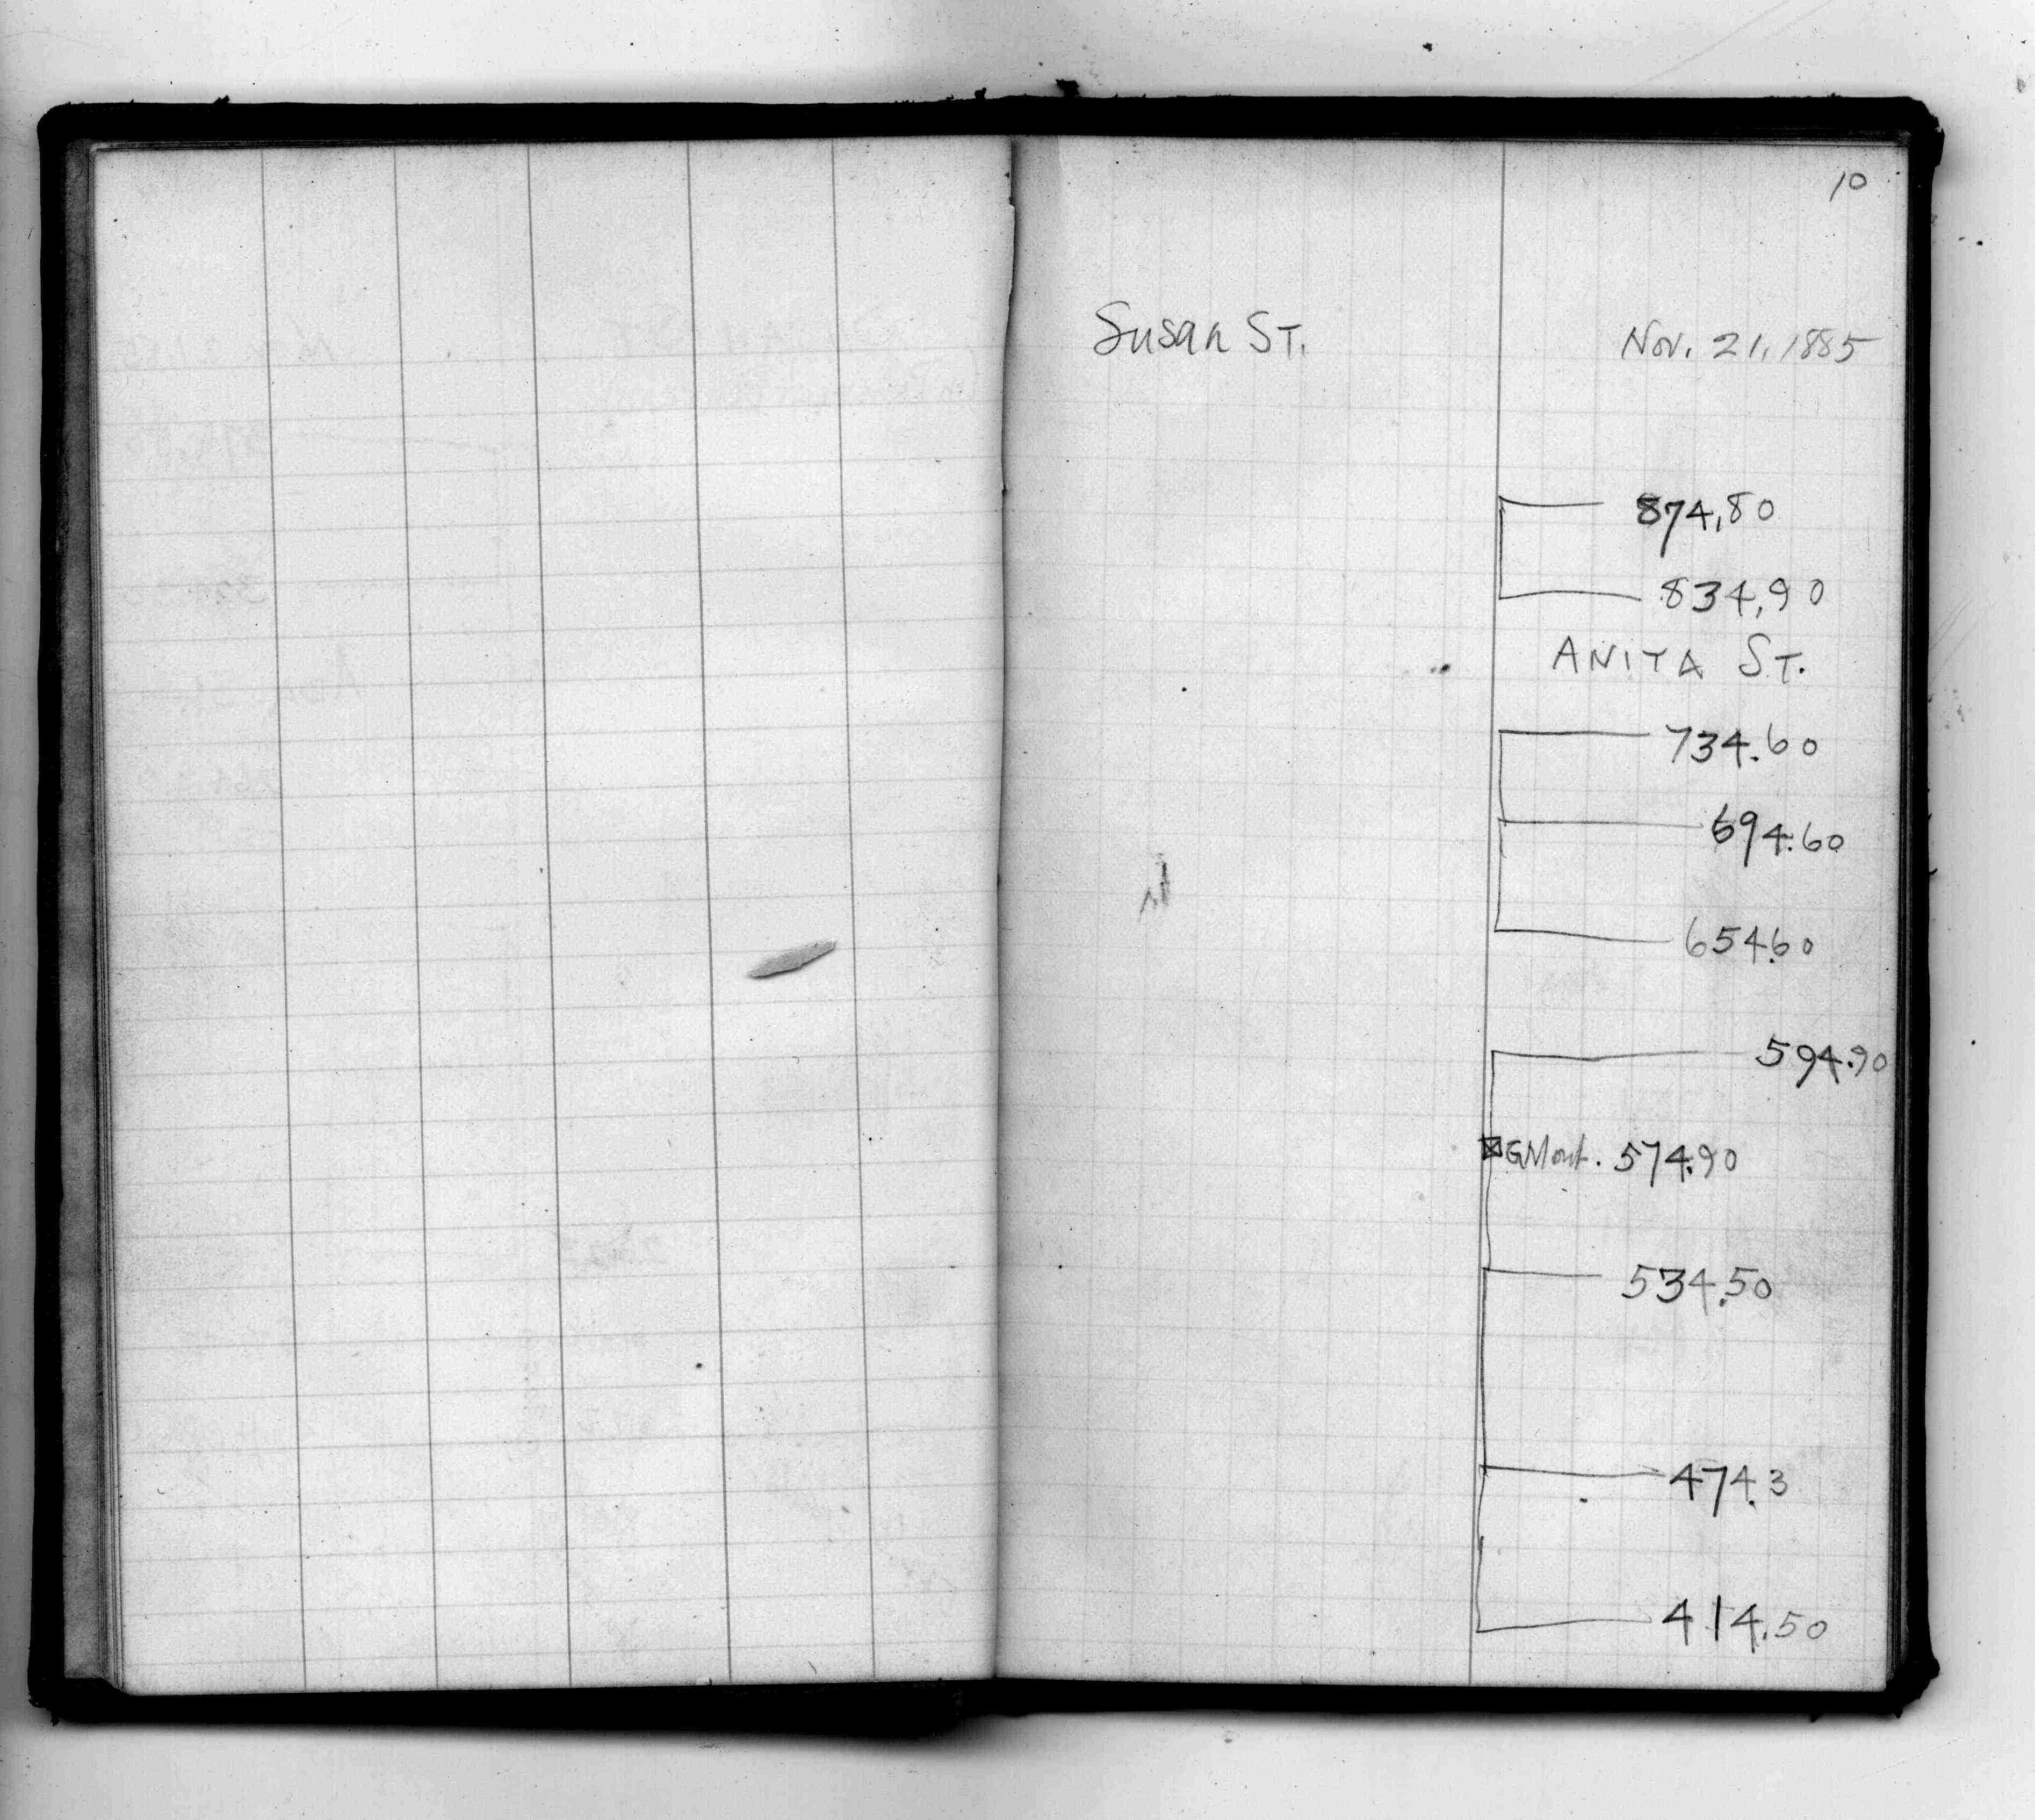 10
Susan St. Nov. 21, 1885
874.80
834.90
ANITA ST.
734.60
694.60
654.60
594.90
574.90
534.50
474.3
414.50